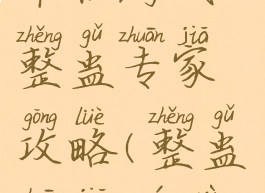 zhěng gǔ zhuān jiā
整蛊专家
gōng lüè zhěng gǔ
攻略(整蛊